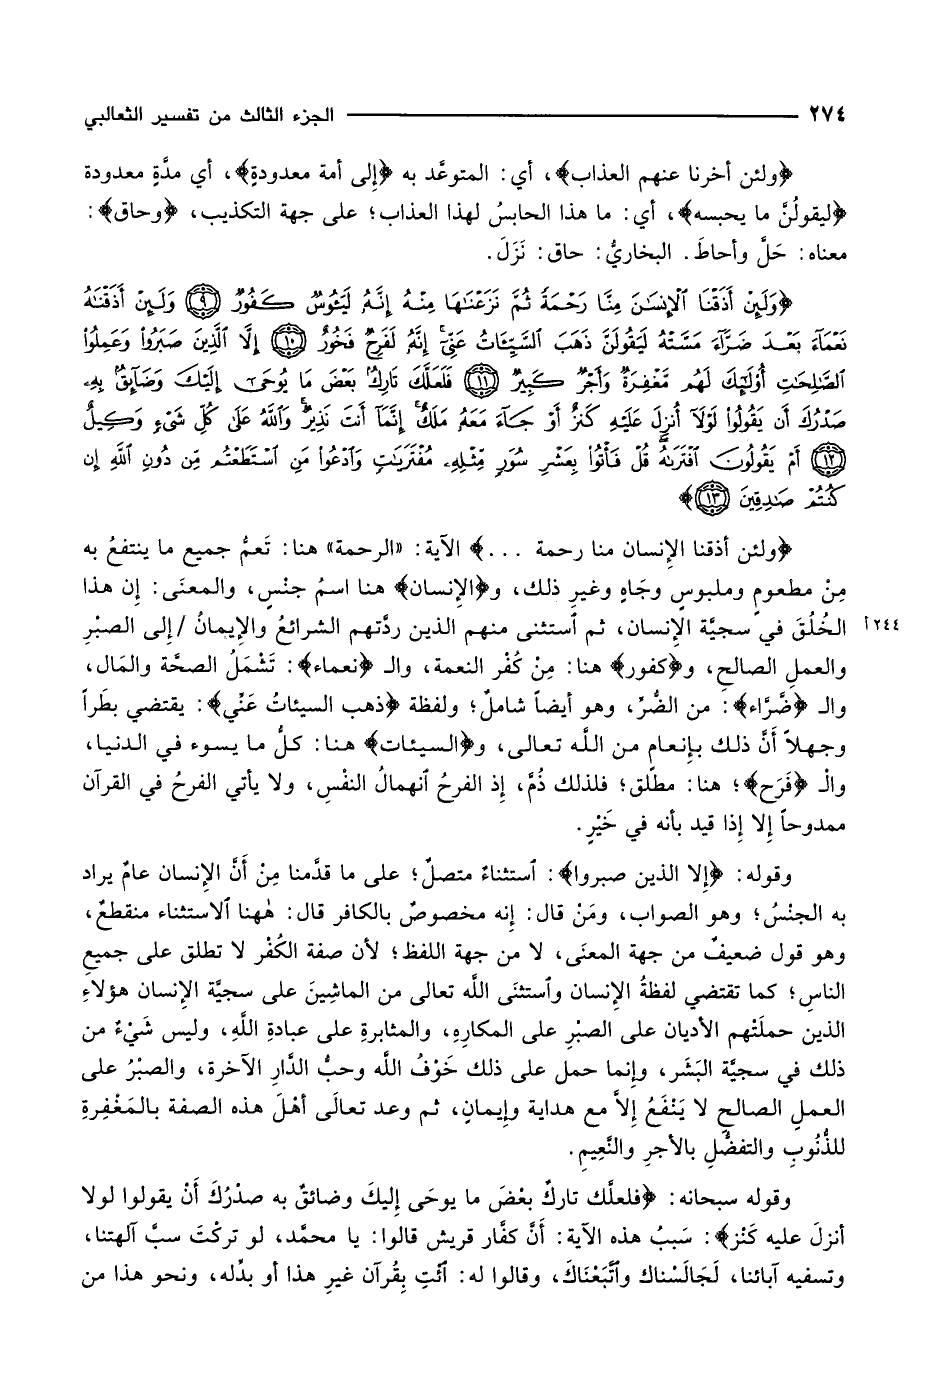 ٢٧٤ ــــــــــــــــــــ الجزء الثالث من تفسير الثعالبي
﴿ولئن أخرنا عنهم العذاب﴾، أي: المتوعَّد به ﴿إلى أمة معدودةٍ﴾، أي مدَّةٍ معدودة
﴿ليقولُنَّ ما يحبسه﴾، أي: ما هذا الحابسُ لهذا العذاب؛ على جهة التكذيب، ﴿وحاق﴾:
معناه: حَلَّ وأحاطَ. البخاريُّ: حاق: نَزَلَ.
﴿وَلَئِنْ أَذَقْنَا ٱلْإِنسَٰنَ مِنَّا رَحْمَةً ثُمَّ نَزَعْنَٰهَا مِنْهُ إِنَّهُۥ لَيَـُٔوسٌ كَفُورٌ ﴿٩﴾ وَلَئِنْ أَذَقْنَٰهُ
نَعْمَآءَ بَعْدَ ضَرَّآءَ مَسَّتْهُ لَيَقُولَنَّ ذَهَبَ ٱلسَّيِّـَٔاتُ عَنِّىٓ إِنَّهُۥ لَفَرِحٌ فَخُورٌ ﴿١٠﴾ إِلَّا ٱلَّذِينَ صَبَرُوا۟ وَعَمِلُوا۟
ٱلصَّٰلِحَٰتِ أُو۟لَٰٓئِكَ لَهُم مَّغْفِرَةٌ وَأَجْرٌ كَبِيرٌ ﴿١١﴾ فَلَعَلَّكَ تَارِكٌۢ بَعْضَ مَا يُوحَىٰٓ إِلَيْكَ وَضَآئِقٌۢ بِهِۦ
صَدْرُكَ أَن يَقُولُوا۟ لَوْلَآ أُنزِلَ عَلَيْهِ كَنزٌ أَوْ جَآءَ مَعَهُۥ مَلَكٌ إِنَّمَآ أَنتَ نَذِيرٌ وَٱللَّهُ عَلَىٰ كُلِّ شَىْءٍ وَكِيلٌ
﴿١٢﴾ أَمْ يَقُولُونَ ٱفْتَرَىٰهُ قُلْ فَأْتُوا۟ بِعَشْرِ سُوَرٍ مِّثْلِهِۦ مُفْتَرَيَٰتٍ وَٱدْعُوا۟ مَنِ ٱسْتَطَعْتُم مِّن دُونِ ٱللَّهِ إِن
كُنتُمْ صَٰدِقِينَ ﴿١٣﴾﴾
﴿ولئن أذقنا الإِنسان منا رحمة ...﴾ الآية: «الرحمة» هنا: تَعمُّ جميع ما ينتفعُ به
مِنْ مطعومٍ وملبوسٍ وجَاهٍ وغيرِ ذلك، و﴿الإِنسان﴾ هنا اسمُ جنْسٍ، والمعنَى: إِن هذا
الخُلُقَ في سجيَّة الإِنسان، ثم ٱستثنى منهم الذين ردَّتهم الشرائعُ والإِيمانُ /إِلى الصبْرِ ٢٤٤أ
والعملِ الصالحِ، و﴿كفور﴾ هنا: مِنْ كُفْر النعمة، والـ ﴿نعماء﴾: تَشْمَلُ الصحَّة والمَال،
والـ ﴿ضَّرَّاء﴾: من الضُّرِّ، وهو أيضاً شاملٌ؛ ولفظة ﴿ذهب السيئاتُ عَنِّي﴾: يقتضي بطَراً
وجهلاً أَنَّ ذلك بإِنعام من اللَّه تعالى، و﴿السيئات﴾ هنا: كلُّ ما يسوء في الدنيا،
والْـ ﴿فَرَح﴾؛ هنا: مطلَق؛ فلذلك ذُمَّ، إِذ الفرحُ ٱنهمالُ النفْسِ، ولا يأتي الفرحُ في القرآن
ممدوحاً إِلا إِذا قيد بأنه في خَيْرٍ.
وقوله: ﴿إِلا الذين صبروا﴾: ٱستثناءٌ متصلٌ؛ على ما قدَّمنا مِنْ أَنَّ الإِنسان عامٌ يراد
به الجنْسُ؛ وهو الصواب، ومَنْ قال: إِنه مخصوصٌ بالكافر قال: هٰهنا الاستثناء منقطعٌ،
وهو قول ضعيفٌ من جهة المعنَى، لا من جهة اللفظ؛ لأن صفة الكُفْر لا تطلق على جميعِ
الناسِ؛ كما تقتضي لفظةُ الإِنسان وٱستثنَى اللَّه تعالى من الماشِينَ على سجيَّة الإِنسان هؤلاءِ
الذين حملَتْهم الأديان على الصبْرِ على المكارِهِ، والمثابرةِ على عبادةِ اللَّهِ، وليس شَيْءٌ من
ذلك في سجيَّة البَشَر، وإِنما حمل على ذلك خَوْفُ اللَّه وحبُّ الدَّارِ الآخرة، والصبْرُ على
العملِ الصالحِ لا يَنْفَعُ إِلاَّ مع هداية وإِيمانٍ، ثم وعد تعالَى أهْلَ هذه الصفة بالمَغْفِرةِ
للذُّنُوبِ والتفضُّلِ بالأجرِ والنَّعِيمِ.
وقوله سبحانه: ﴿فلعلَّك تاركٌ بعْضَ ما يوحَى إِليكَ وضائقٌ به صدْرُكَ أَنْ يقولوا لولا
أنزلَ عليه كَنْز﴾: سَببُ هذه الآية: أَنَّ كفَّار قريش قالوا: يا محمَّد، لو تركْتَ سبَّ آلهتنا،
وتسفيه آبائنا، لَجَالَسْناك وٱتَّبَعْنَاكَ، وقالوا له: ٱئْتِ بِقُرآن غيرِ هذا أو بدِّله، ونحو هذا من